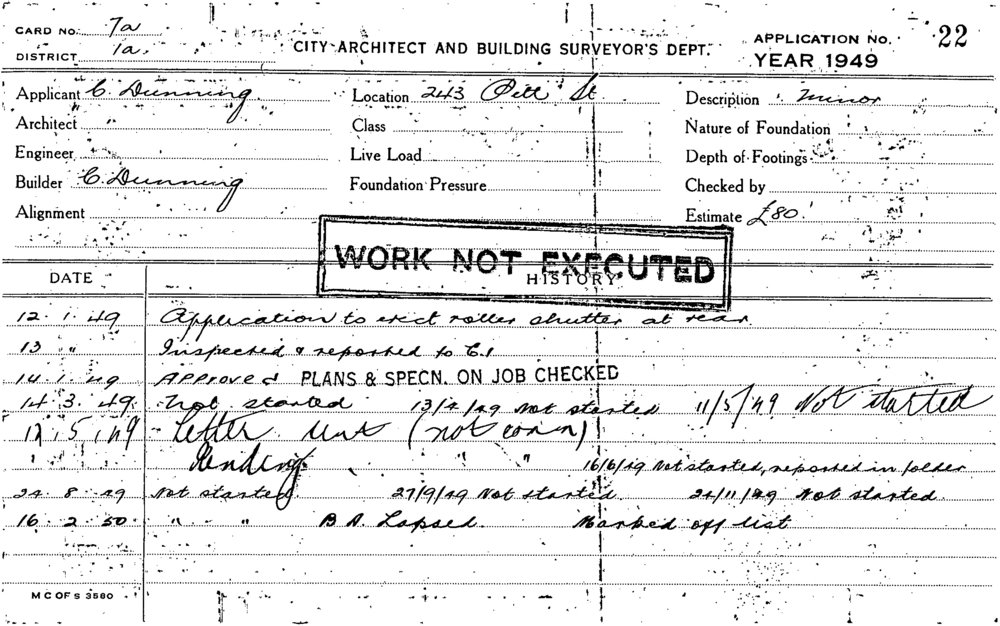 CARD No. 7a
DISTRICT 1a
CITY ARCHITECT AND BUILDING SURVEYOR'S DEPT.
APPLICATION No. 22
YEAR 1949
Applicant C. Dunning
Location 243 Pitt St
Description minor
Architect
Class
Nature of Foundation
Engineer
Live Load
Depth of Footings
Builder C. Dunning
Foundation Pressure
Checked by
Alignment
Estimate £80
WORK NOT EXECUTED
DATE
HISTORY
12.1.49 Application to erect roller shutter at rear
13 " Inspected & reported to C.1
14.1.49 Approved PLANS & SPECN. ON JOB CHECKED
14.3.49. Not started 13/4/49 Not started 11/5/49 Not started
12.5.49 Letter (not com n)
" Pending " " 16/6/49 Not started, reported in folder
24.8.49 Not started 27/9/49 Not started. 24/11/49 Not started.
16.2.50 " " B.A. Lapsed. Marked off list
M C OF S 3580